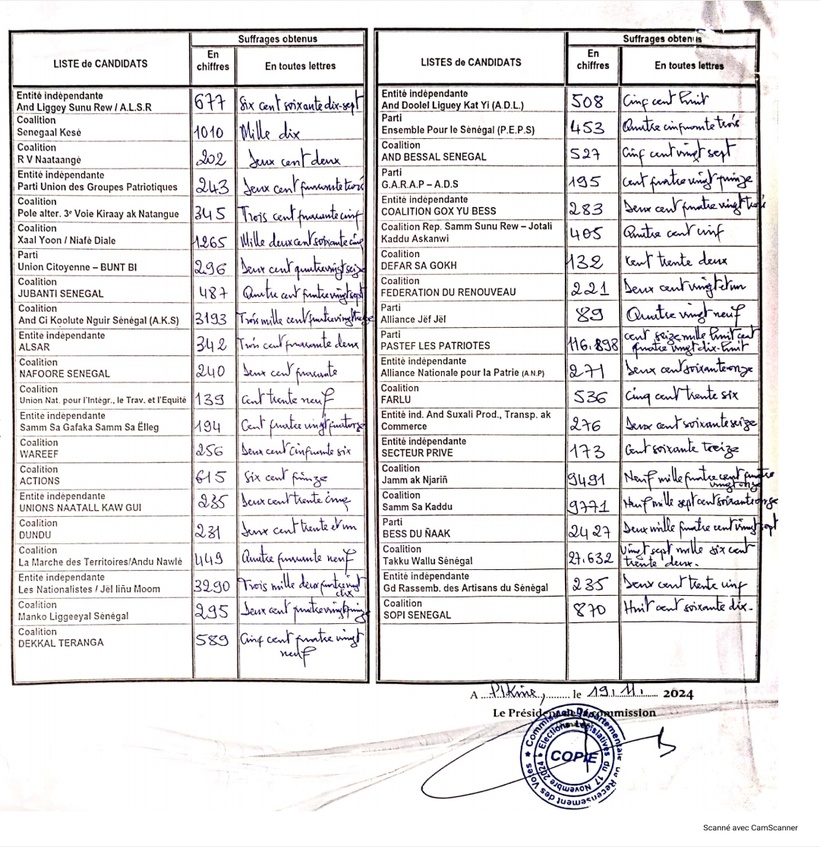 LISTE de CANDIDATS
Suffrages obtenus
En chiffres
En toutes lettres
Entité indépendante
And Liggey Sunu Rew / A.L.S.R 677 Six cent soixante dix-sept
Coalition
Senegaal Kesé 1010 Mille dix
Coalition
R V Naataangé 202 Deux cent deux
Entité indépendante
Parti Union des Groupes Patriotiques 243 Deux cent
Coalition
Pole alter. 3e Voie Kiraay ak Natangue 345 Trois cent
Coalition
Xaal Yoon / Niafé Diale 1265 Mille deux cent soixante cinq
Parti
Union Citoyenne – BUNT BI 296 Deux cent quatrevingt seize
Coalition
JUBANTI SENEGAL 487 Quatre cent quatre vingt sept
Coalition
And Ci Koolute Nguir Sénégal (A.K.S) 3193 Trois mille cent quatrevingt treize
Entité indépendante
ALSAR 342 Trois cent quarante deux
Coalition
NAFOORE SENEGAL 240 Deux cent quarante
Coalition
Union Nat. pour l'Intégr., le Trav. et l'Equité 139 Cent trente neuf
Entité indépendante
Samm Sa Gafaka Samm Sa Élleg 194 Cent quatre vingt quatorze
Coalition
WAREEF 256 Deux cent cinquante six
Coalition
ACTIONS 615 Six cent quinze
Entité indépendante
UNIONS NAATALL KAW GUI 235 Deux cent trente cinq
Coalition
DUNDU 231 Deux cent trente et un
Coalition
La Marche des Territoires/Andu Nawlé 449 Quatre quarante neuf
Entité indépendante
Les Nationalistes / Jël liñu Moom 3290 Trois mille deux quatre vingt dix
Coalition
Manko Liggeeyal Sénégal 295 Deux cent quatrevingt quinze
Coalition
DEKKAL TERANGA 589 Cinq cent quatre vingt
neuf
LISTES de CANDIDATS
Suffrages obtenus
En chiffres
En toutes lettres
Entité indépendante
And Doolel Liguey Kat Yi (A.D.L.) 508 Cinq cent huit
Parti
Ensemble Pour le Sénégal (P.E.P.S) 453 Quatre cinquante trois
Coalition
AND BESSAL SENEGAL 527 Cinq cent vingt sept
Parti
G.A.R.A.P – A-D-S 195 Cent quatre vingt quinze
Entité indépendante
COALITION GOX YU BESS 283 Deux cent quatre vingt trois
Coalition Rep. Samm Sunu Rew – Jotali
Kaddu Askanwi 405 Quatre cent cinq
Coalition
DEFAR SA GOKH 132 Cent trente deux
Coalition
FEDERATION DU RENOUVEAU 221 Deux cent vingt et un
Parti
Alliance Jëf Jël 89 Quatre vingt neuf
Parti
PASTEF LES PATRIOTES 116.898 cent seize mille huit cent
quatre vingt dix-huit
Entité indépendante
Alliance Nationale pour la Patrie (A.N.P) 271 Deux cent soixante onze
Coalition
FARLU 536 Cinq cent trente six
Entité ind. And Suxali Prod., Transp. ak
Commerce 276 Deux cent soixante seize
Entité indépendante
SECTEUR PRIVE 173 Cent soixante treize
Coalition
Jamm ak Njariñ 9491 Neuf mille quatre cent quatre
vingt onze
Coalition
Samm Sa Kaddu 9771 Neuf mille sept cent soixante onze
Parti
BESS DU ÑAAK 2427 Deux mille quatre cent vingt sept
Coalition
Takku Wallu Sénégal 27.632 Vingt sept mille six cent
trente deux.
Entité indépendante
Gd Rassemb. des Artisans du Sénégal 235 Deux cent trente cinq
Coalition
SOPI SENEGAL 870 Huit cent soixante dix.
A Pikine, le 19.11. 2024
Le Président de Commission
Commission Départementale de Recensement des Votes
Elections Législatives du 17 Novembre 2024
COPIE
Scanné avec CamScanner